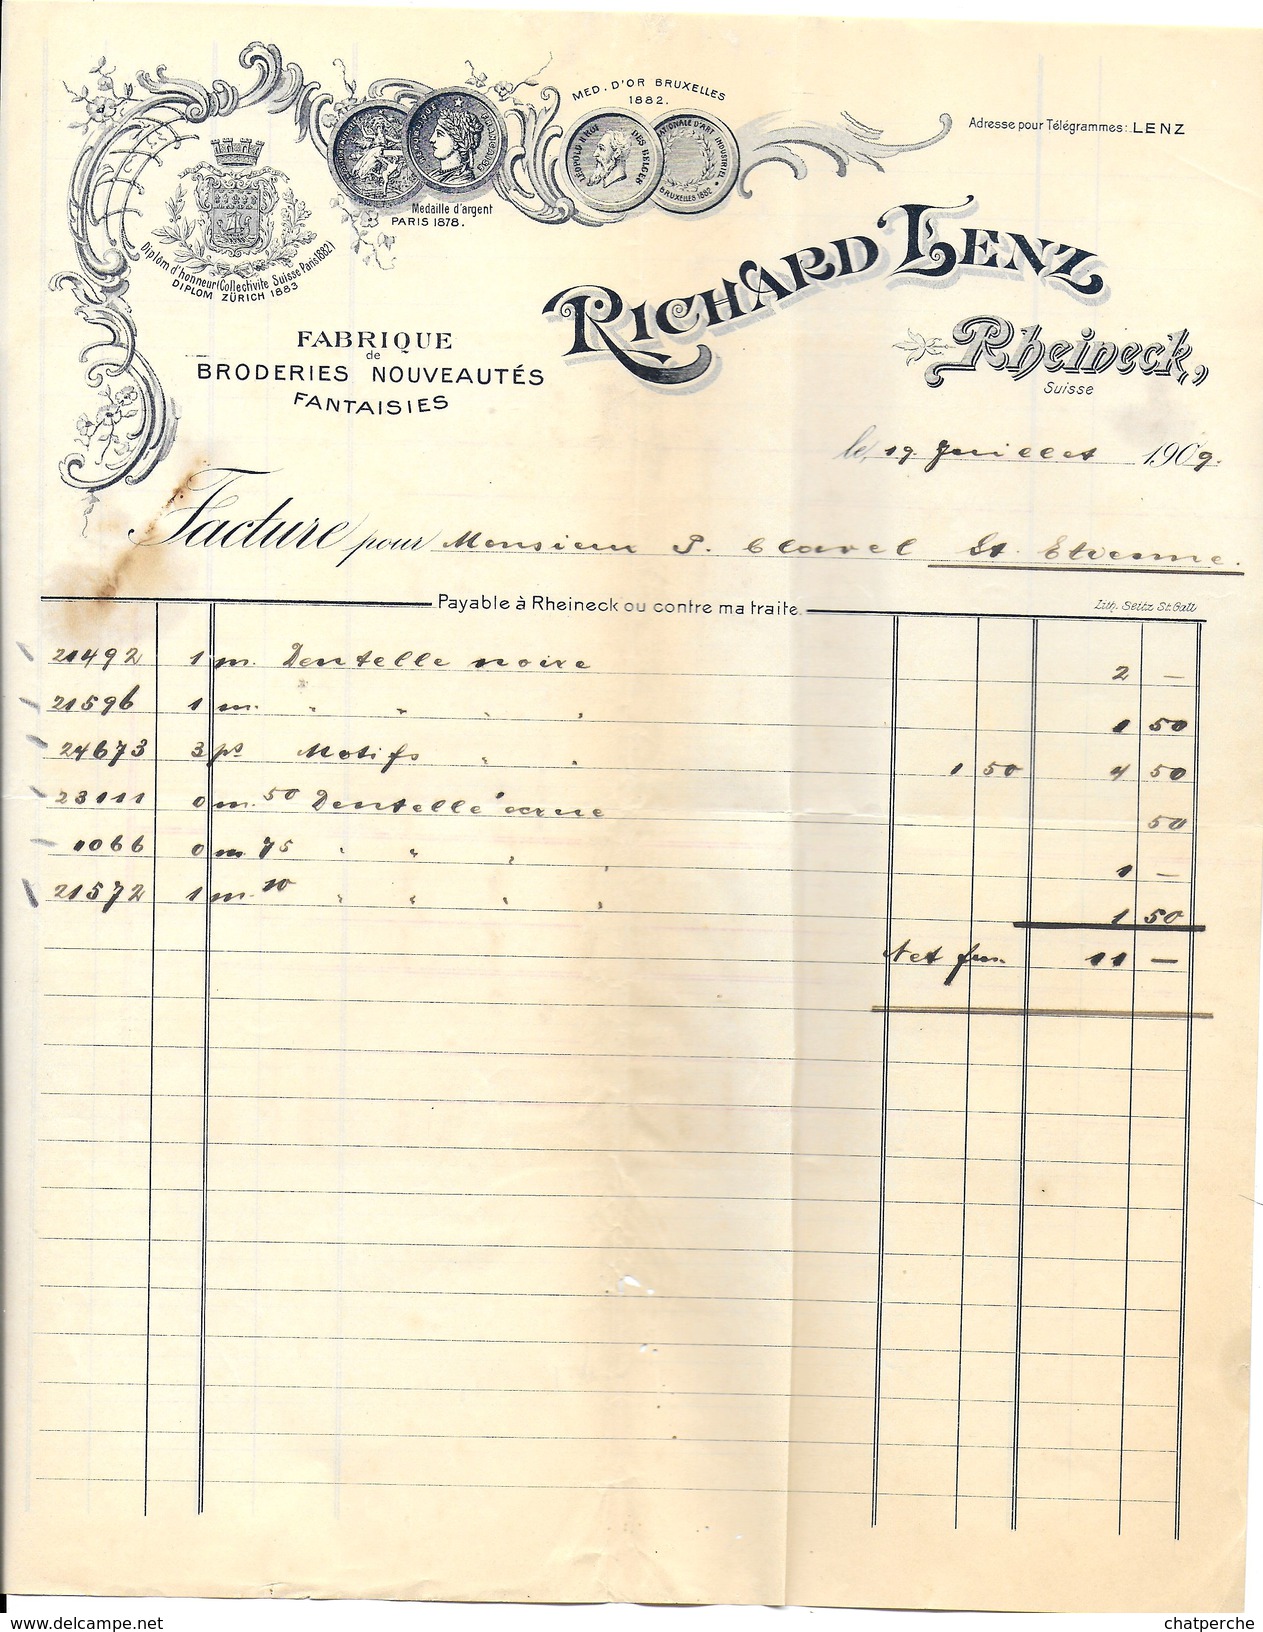 MED. D'OR BRUXELLES
1882.
Adresse pour Télégrammes: LENZ
LÉOPOLD II ROI DES BELGES
BRUXELLES 1882
Medaille d'argent
PARIS 1878.
Diplom d'honneur (Collectivite Suisse Paris 1882)
DIPLOM ZÜRICH 1883
RICHARD LENZ
Rheineck,
Suisse
FABRIQUE
de
BRODERIES NOUVEAUTÉS
FANTAISIES
le, 19. Juillet 1909.
Facture pour Monsieur P. Clavel St. Etienne.
Payable à Rheineck ou contre ma traite.
Lith. Seitz St. Gall
21492 1 m. Dentelle noire 2 —
21596 1 m. " " " " 1 50
24673 3 ps Motifs " " 1 50 4 50
23111 0 m. 50 Dentelle écrue 50
1066 0 m. 75 " " " " 1 —
21572 1 m. 10 " " " " 1 50
Net frs. 11 —
www.delcampe.net
chatperche